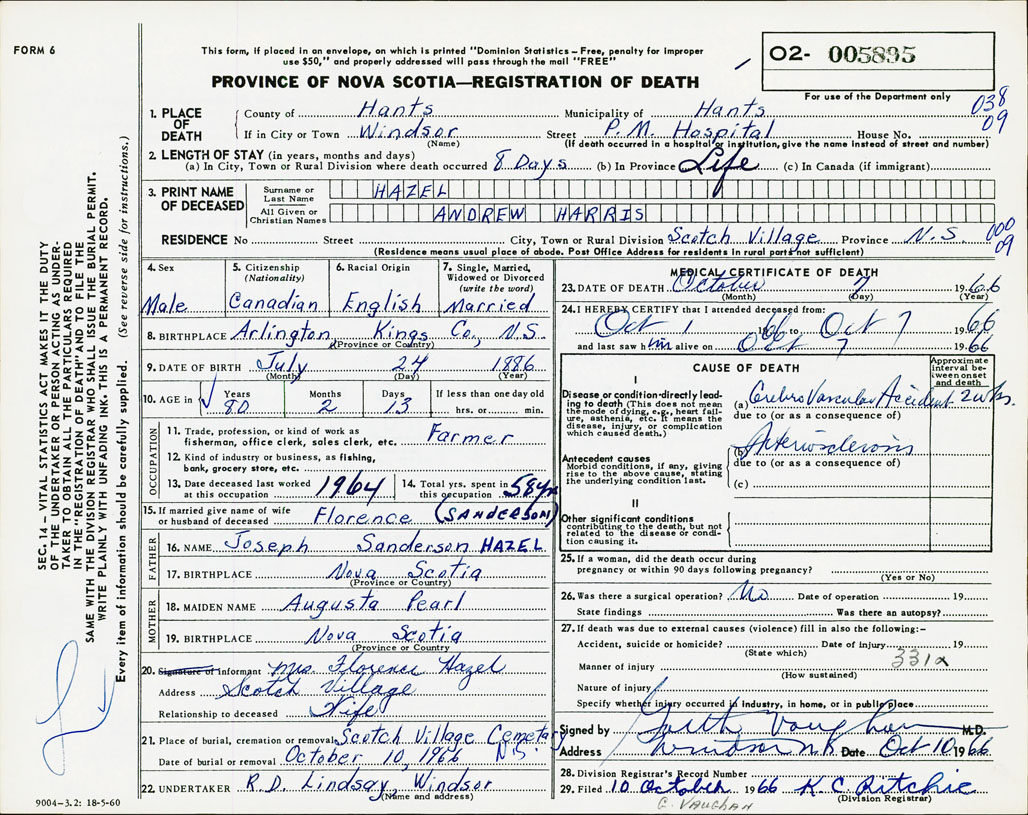 FORM 6
This form, if placed in an envelope, on which is printed "Dominion Statistics – Free, penalty for improper
use $50," and properly addressed will pass through the mail "FREE"
PROVINCE OF NOVA SCOTIA—REGISTRATION OF DEATH
02- 005895
For use of the Department only
038
09
1. PLACE OF DEATH
County of Hants Municipality of Hants
If in City or Town Windsor Street P.M. Hospital House No.
(Name) (If death occurred in a hospital or institution, give the name instead of street and number)
2. LENGTH OF STAY (in years, months and days)
(a) In City, Town or Rural Division where death occurred 8 Days (b) In Province Life (c) In Canada (if immigrant)
3. PRINT NAME OF DECEASED
Surname or Last Name HAZEL
All Given or Christian Names ANDREW HARRIS
000
09
RESIDENCE No Street City, Town or Rural Division Scotch Village Province N.S.
(Residence means usual place of abode. Post Office Address for residents in rural parts not sufficient)
4. Sex Male
5. Citizenship (Nationality) Canadian
6. Racial Origin English
7. Single, Married, Widowed or Divorced (write the word) Married
8. BIRTHPLACE Arlington Kings Co., N.S.
(Province or Country)
9. DATE OF BIRTH July 24 1886
(Month) (Day) (Year)
10. AGE in Years 80 Months 2 Days 13 If less than one day old
hrs. or min.
OCCUPATION
11. Trade, profession, or kind of work as
fisherman, office clerk, sales clerk, etc. Farmer
12. Kind of industry or business, as fishing,
bank, grocery store, etc.
13. Date deceased last worked at this occupation 1964
14. Total yrs. spent in this occupation 58 yrs
15. If married give name of wife
or husband of deceased Florence (SANDERSON)
FATHER
16. NAME Joseph Sanderson HAZEL
17. BIRTHPLACE Nova Scotia
(Province or Country)
MOTHER
18. MAIDEN NAME Augusta Pearl
19. BIRTHPLACE Nova Scotia
(Province or Country)
20. Signature of informant Mrs. Florence Hazel
Address Scotch Village
Relationship to deceased Wife
21. Place of burial, cremation or removal Scotch Village Cemetary
N.S.
Date of burial or removal October 10, 1966
22. UNDERTAKER R.D. Lindsay, Windsor
(Name and address)
MEDICAL CERTIFICATE OF DEATH
23. DATE OF DEATH October 7 1966
(Month) (Day) (Year)
24. I HEREBY CERTIFY that I attended deceased from:
Oct 1 1966 to Oct 7 1966
and last saw him alive on Oct 7 1966
CAUSE OF DEATH
Approximate interval between onset and death
I
Disease or condition directly leading to death (This does not mean the mode of dying, e.g., heart failure, asthenia, etc. It means the disease, injury, or complication which caused death.)
(a) Cerebro Vascular Accident 2 wks.
due to (or as a consequence of)
Antecedent causes
Morbid conditions, if any, giving rise to the above cause, stating the underlying condition last.
(b) Arteriosclerosis
due to (or as a consequence of)
(c)
II
Other significant conditions
contributing to the death, but not related to the disease or condition causing it.
25. If a woman, did the death occur during
pregnancy or within 90 days following pregnancy?
(Yes or No)
26. Was there a surgical operation? No Date of operation 19
State findings Was there an autopsy?
27. If death was due to external causes (violence) fill in also the following:–
Accident, suicide or homicide? Date of injury 19
(State which)
331x
Manner of injury
(How sustained)
Nature of injury
Specify whether injury occurred in industry, in home, or in public place
Signed by Garth Vaughan M.D.
Address Windsor N.S. Date Oct 10 1966
28. Division Registrar's Record Number
29. Filed 10 October 1966 K. C. Ritchie
(Division Registrar)
G. VAUGHAN
SEC. 14 – VITAL STATISTICS ACT MAKES IT THE DUTY
OF THE UNDERTAKER OR PERSON ACTING AS UNDER-
TAKER TO OBTAIN ALL THE PARTICULARS REQUIRED
IN THE "REGISTRATION OF DEATH" AND TO FILE THE
SAME WITH THE DIVISION REGISTRAR WHO SHALL ISSUE THE BURIAL PERMIT.
WRITE PLAINLY WITH UNFADING INK. THIS IS A PERMANENT RECORD.
Every item of information should be carefully supplied. (See reverse side for instructions.)
9004–3.2: 18-5-60